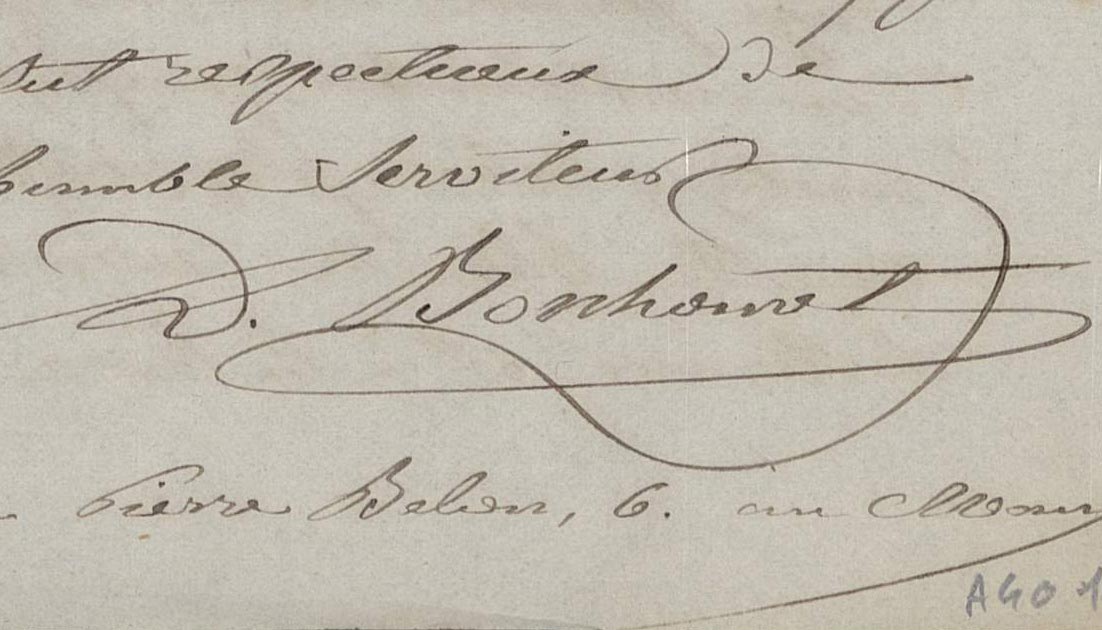 respectueux de
humble Serviteur
D. Bonhomet
Pierre Belon, 6. au Mans
AGO 1